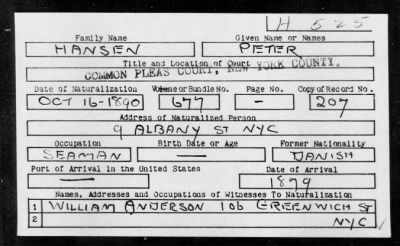 H 525
Family Name Given Name or Names
HANSEN PETER
Title and Location of Court
COMMON PLEAS COURT, NEW YORK COUNTY.
Date of Naturalization Volume or Bundle No. Page No. Copy of Record No.
OCT 16-1890 677 - 207
Address of Naturalized Person
9 ALBANY ST NYC
Occupation Birth Date or Age Former Nationality
SEAMAN — DANISH
Port of Arrival in the United States Date of Arrival
— 1879
Names, Addresses and Occupations of Witnesses To Naturalization
1 WILLIAM ANDERSON 106 GREENWICH ST
2 NYC